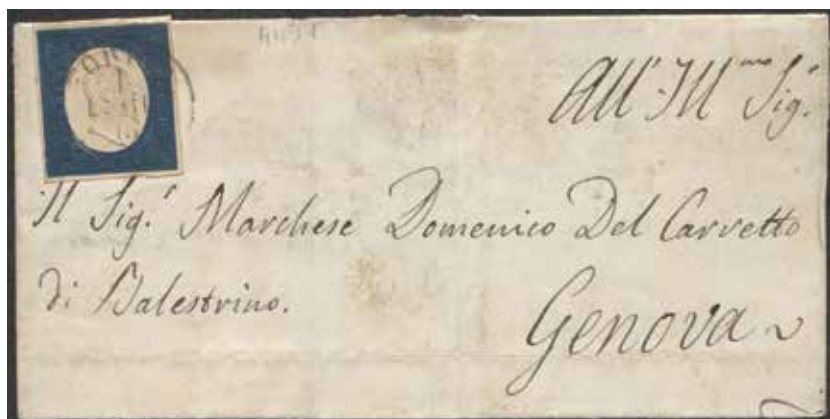 All' Ill.mo Sig.r
Il Sig.r Marchese Domenico Del Carretto
di Balestrino.
Genova